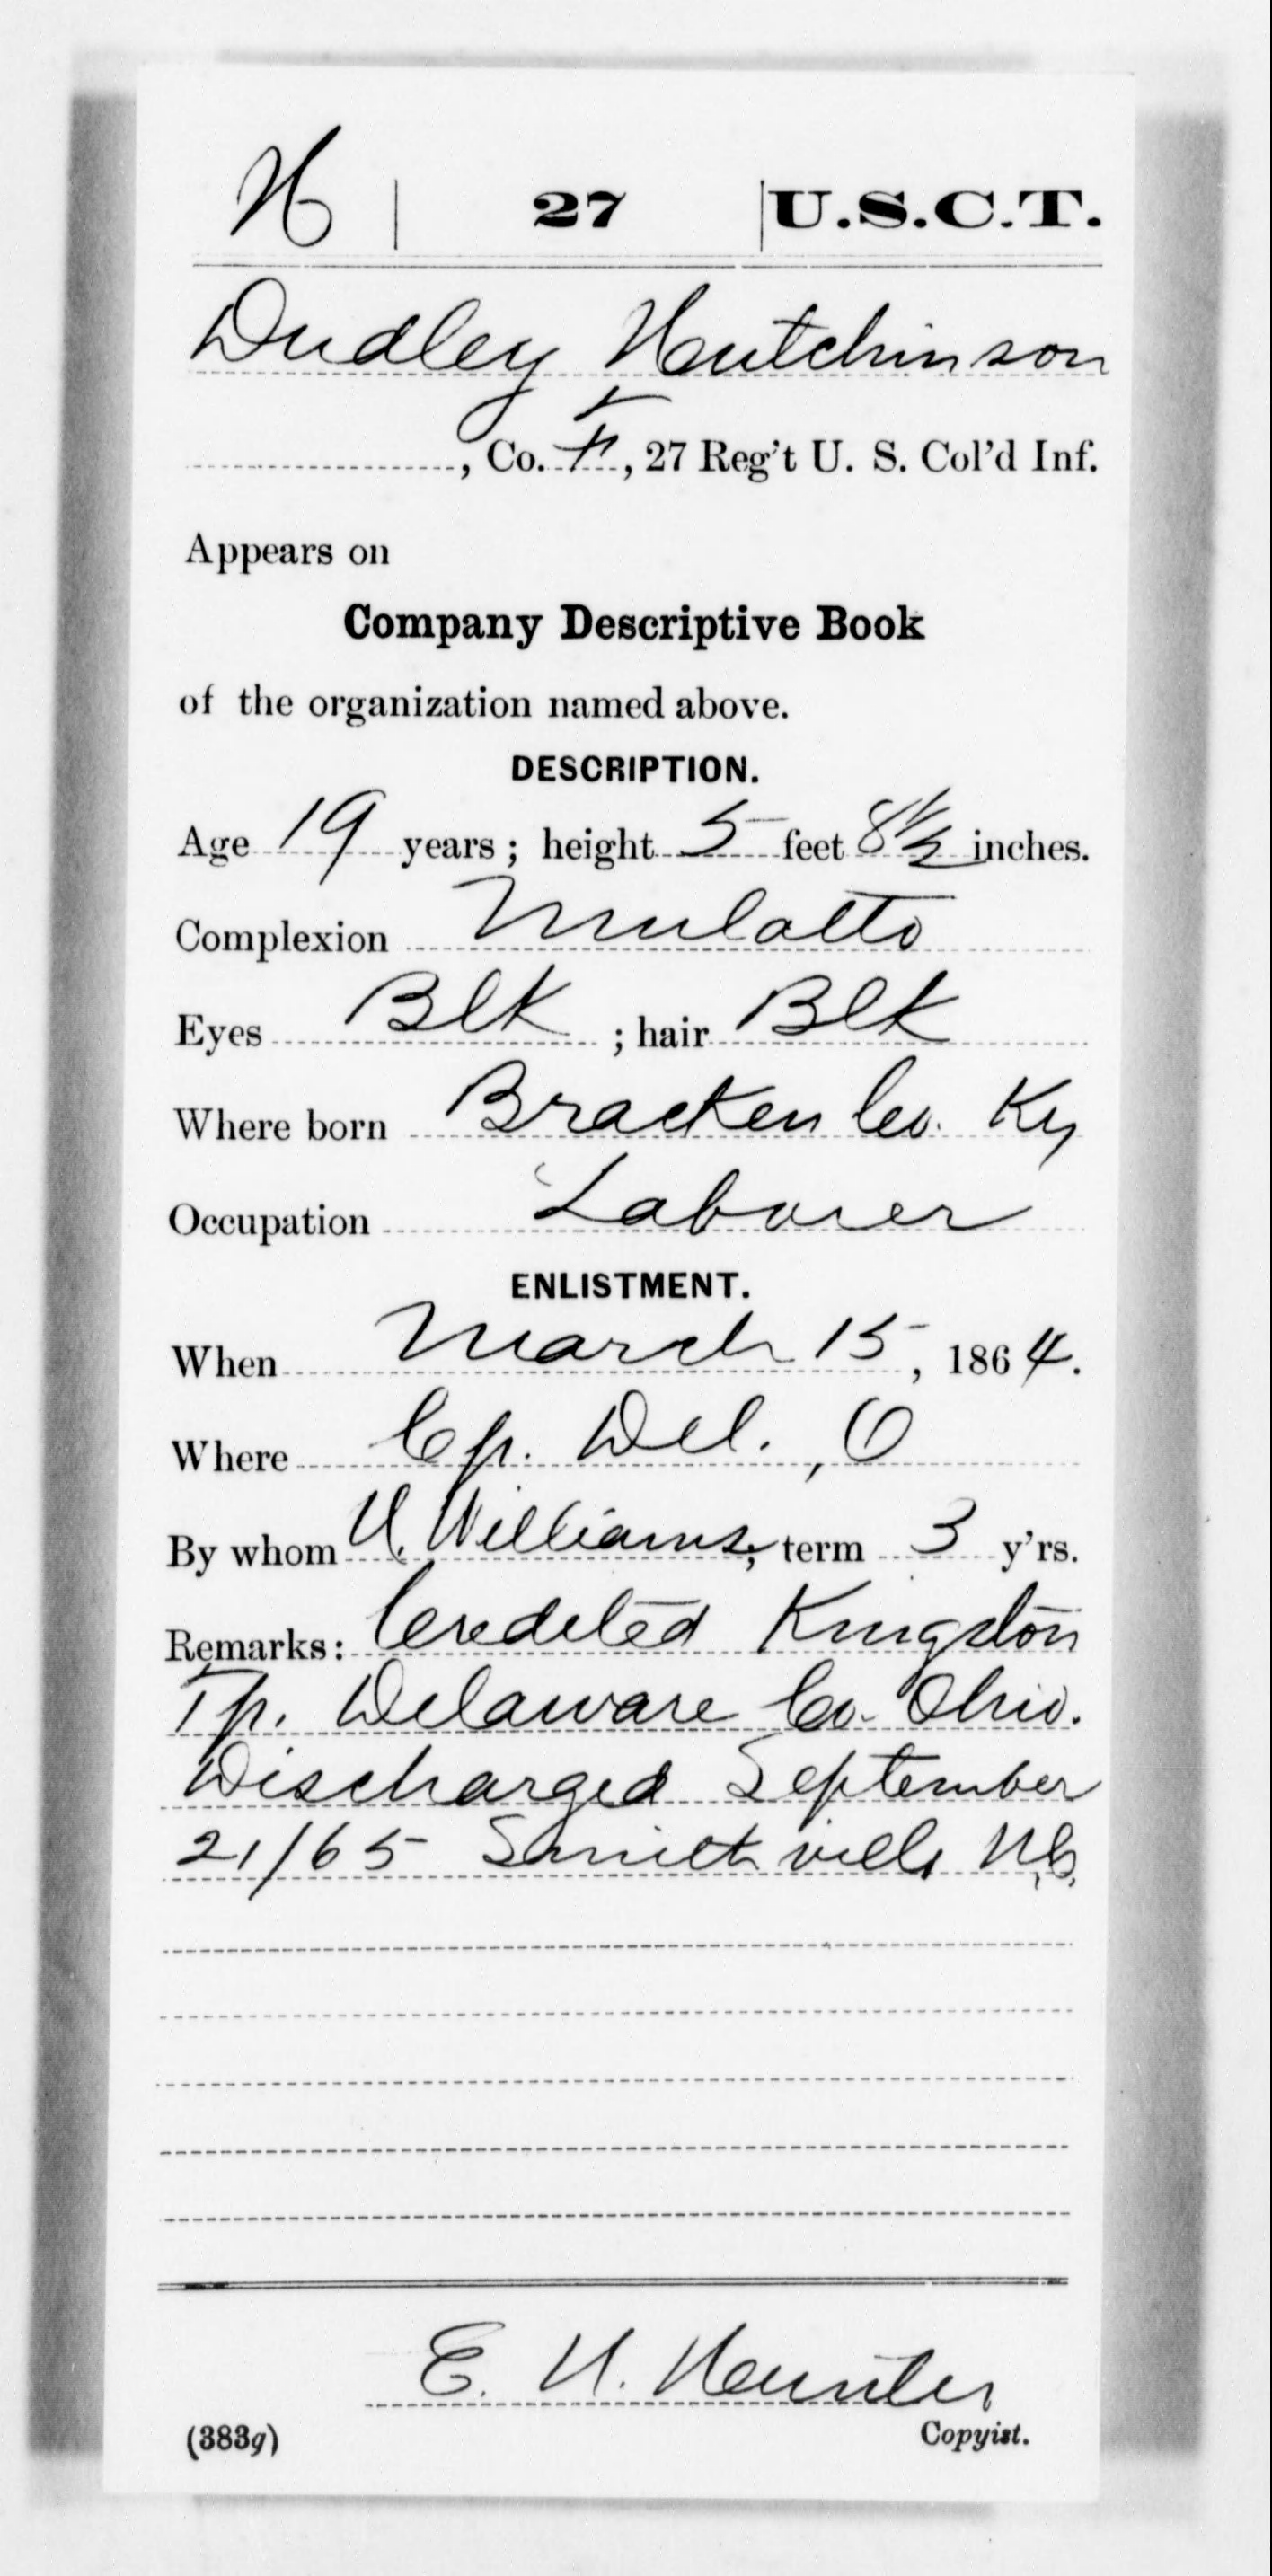 H | 27 | U.S.C.T.
Dudley Hutchinson
, Co. F, 27 Reg't U. S. Col'd Inf.
Appears on
Company Descriptive Book
of the organization named above.
DESCRIPTION.
Age 19 years; height 5 feet 8 1/2 inches.
Complexion Mulatto
Eyes Blk ; hair Blk
Where born Bracken Co. Ky
Occupation Laborer
ENLISTMENT.
When March 15, 1864.
Where Cp. Del., O
By whom Williams; term 3 y'rs.
Remarks: Credited Kingston
Tp. Delaware Co. Ohio.
Discharged September
21/65 Smithville N.C.
E. Hunter
Copyist.
(383g)